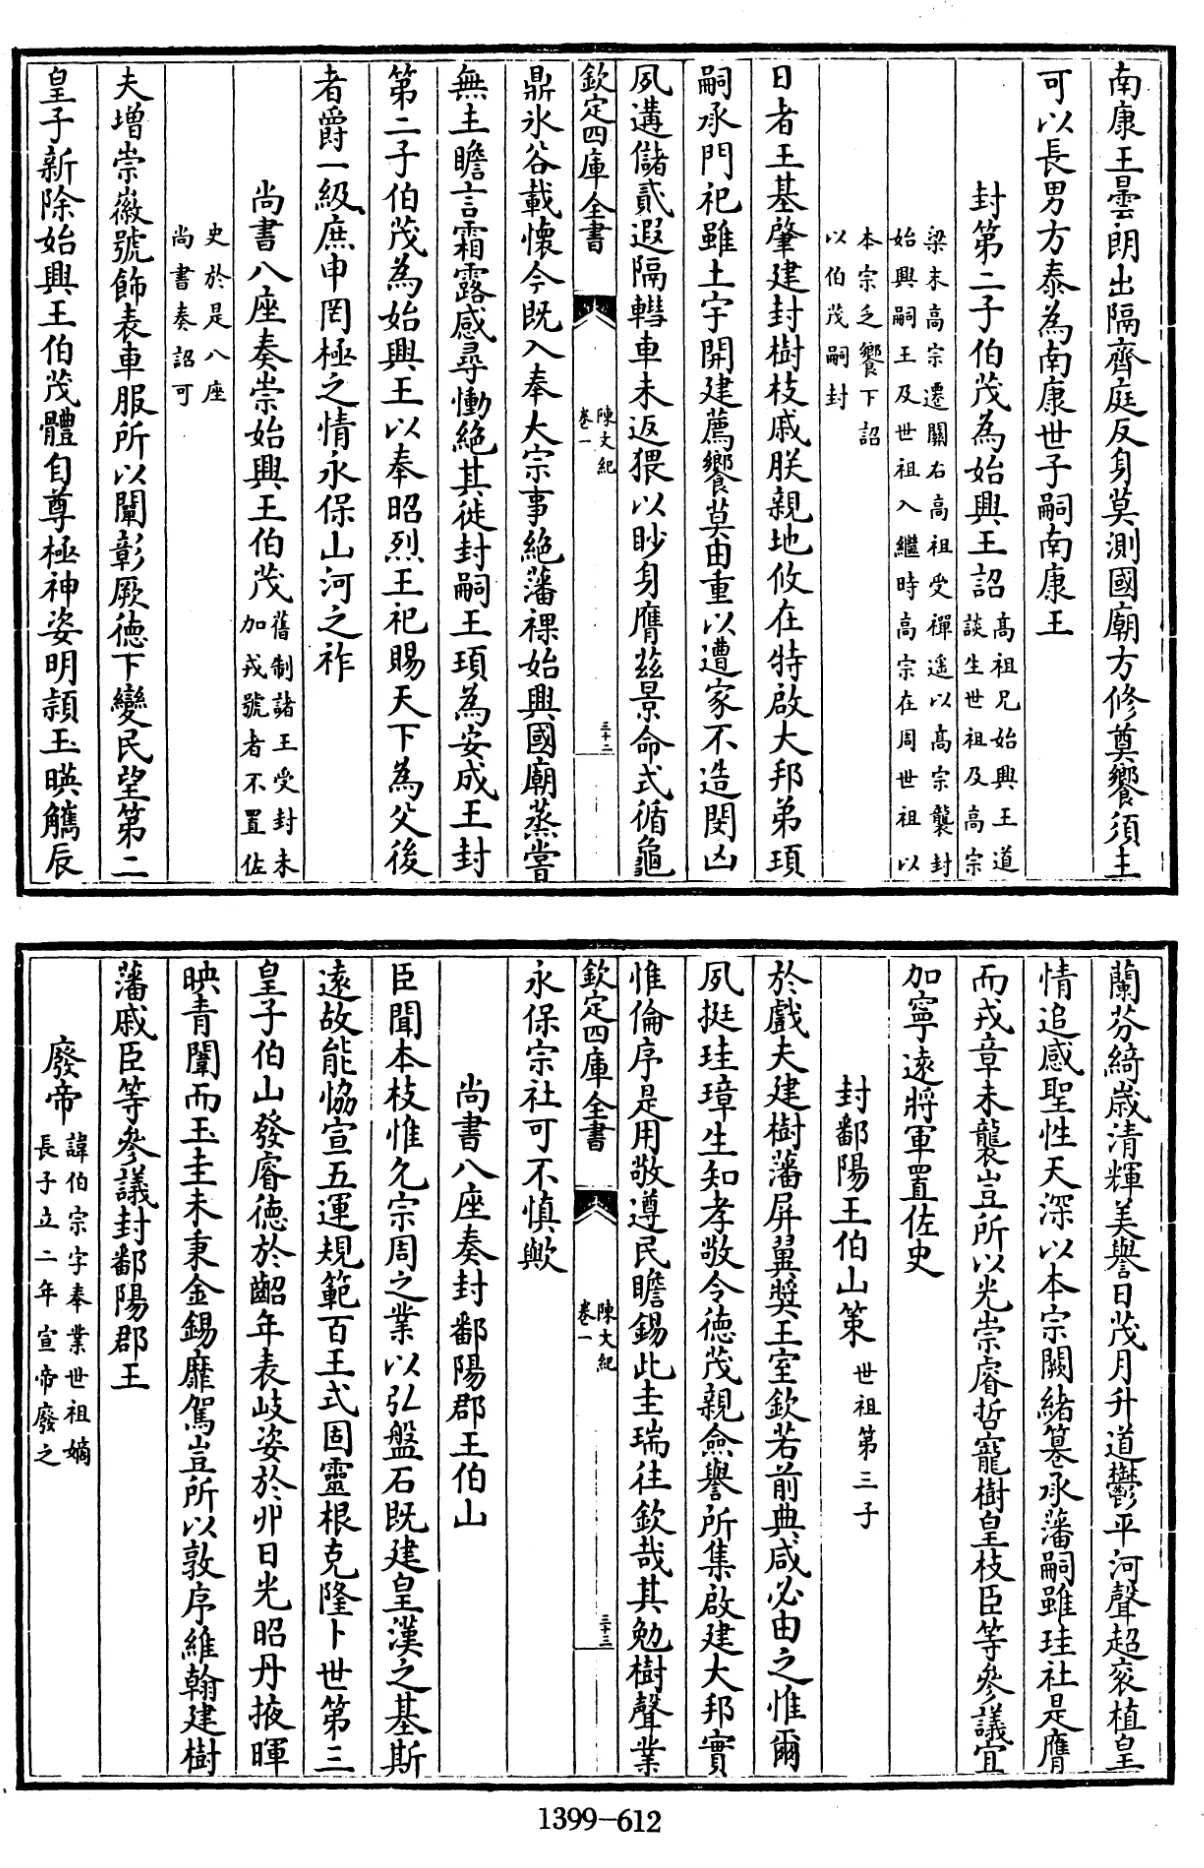 南康王曇朗出隔齊庭反身莫測國廟方修奠饗須主
可以長男方泰為南康世子嗣南康王
封第二子伯茂為始興王詔
高祖兄始興王道
談生世祖及高宗
梁末高宗遷關右高祖受禪遥以高宗襲封
始興嗣王及世祖入繼時高宗在周世祖以
本宗乏饗下詔
以伯茂嗣封
日者王基肇建封樹枝戚朕親地攸在特啟大邦弟頊
嗣承門祀雖土宇開建薦饗莫由重以遭家不造閔凶
夙遘儲貳遐隔轊車未返猥以眇身膺兹景命式循龜
欽定四庫全書
陳文紀
卷一
三十二
鼎氷谷載懷今既入奉大宗事絶藩祼始興國廟蒸嘗
無主瞻言霜露感尋慟絶其徙封嗣王頊為安成王封
第二子伯茂為始興王以奉昭烈王祀賜天下為父後
者爵一級庶申罔極之情永保山河之祚
尚書八座奏崇始興王伯茂
舊制諸王受封未
加戎號者不置佐
史於是八座
尚書奏詔可
夫増崇徽號飾表車服所以闡彰厥徳下變民望第二
皇子新除始興王伯茂體自尊極神姿明頴玉暎觿辰
蘭芬綺歳清輝美譽日茂月升道鬱平河聲超衮植皇
情追感聖性天深以本宗闕緒纂承藩嗣雖珪社是膺
而戎章未襲豈所以光崇睿哲寵樹皇枝臣等參議宜
加寧遠將軍置佐史
封鄱陽王伯山策
世祖第三子
於戲夫建樹藩屏翼奬王室欽若前典咸必由之惟爾
夙挺珪璋生知孝敬令徳茂親僉譽所集啟建大邦實
惟倫序是用敬遵民瞻錫此圭瑞往欽哉其勉樹聲業
欽定四庫全書
陳文紀
卷一
三十三
永保宗社可不慎歟
尚書八座奏封鄱陽郡王伯山
臣聞本枝惟允宗周之業以弘盤石既建皇漢之基斯
遠故能恊宣五運規範百王式固靈根克隆卜世第三
皇子伯山發睿徳於齠年表岐姿於丱日光昭丹掖暉
映青闈而玉圭未秉金錫靡駕豈所以敦序維翰建樹
藩戚臣等參議封鄱陽郡王
廢帝
諱伯宗字奉業世祖嫡
長子立二年宣帝廢之
1399-612